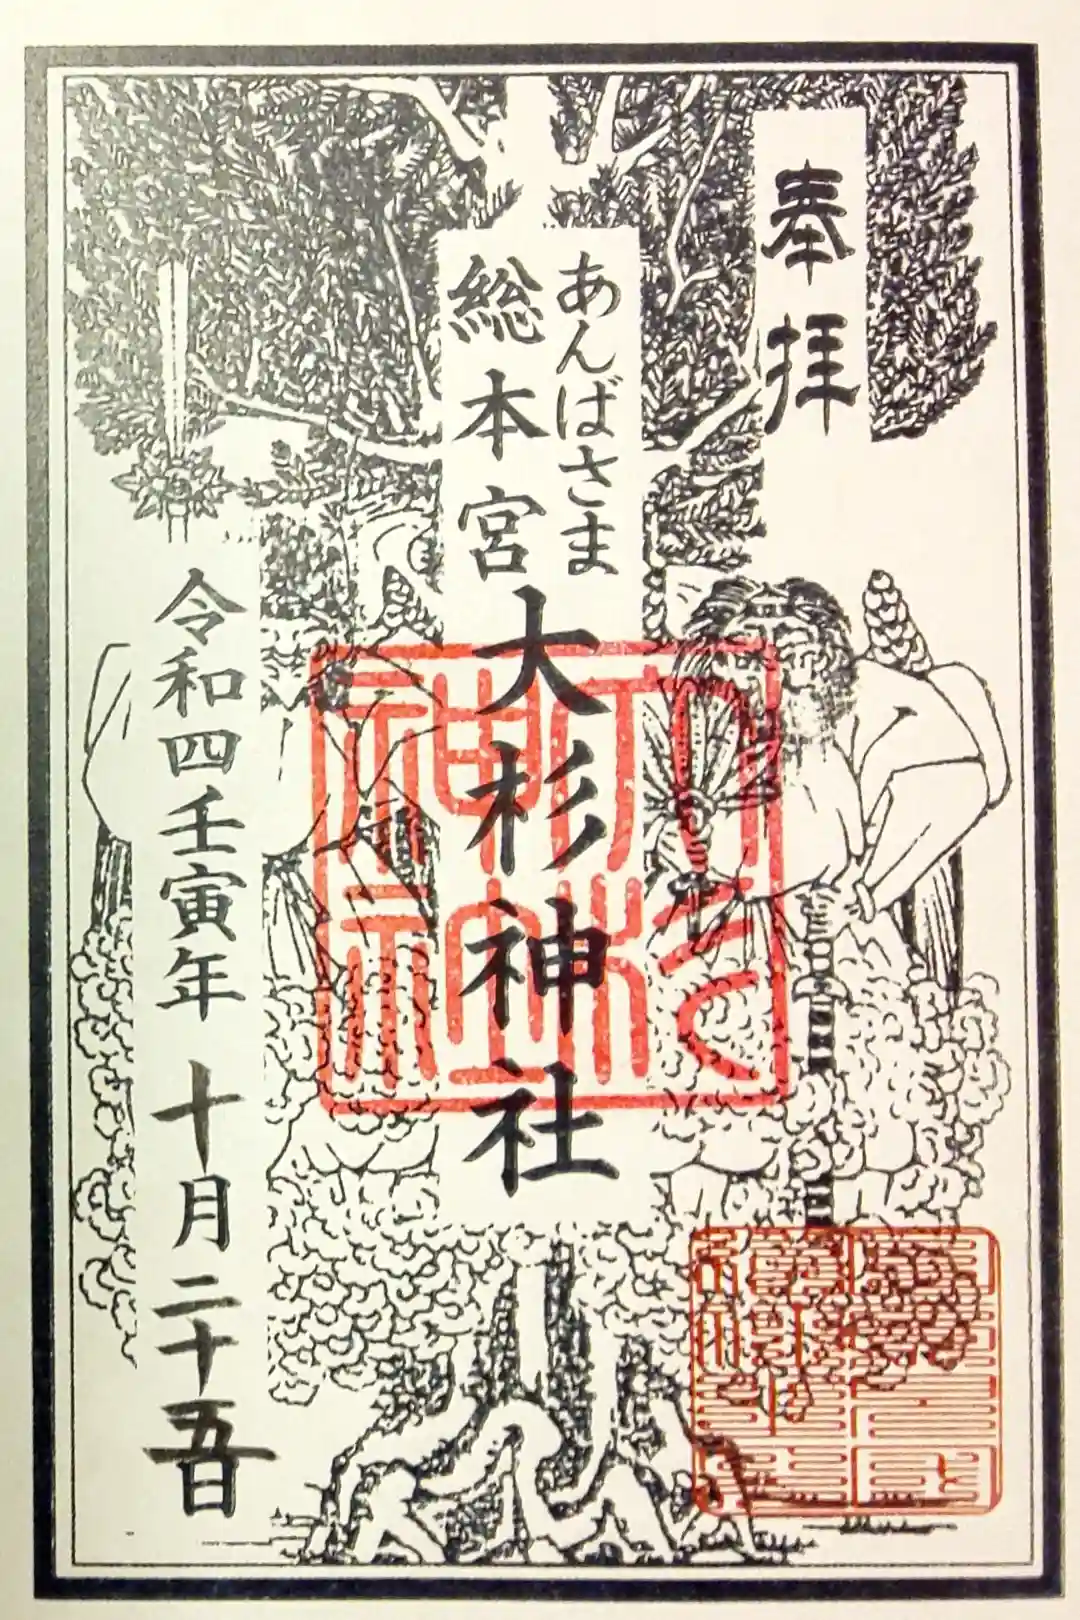 奉拝
あんばさま
総本宮
大杉神社
令和四壬寅年 十月二十五日
大杉神社